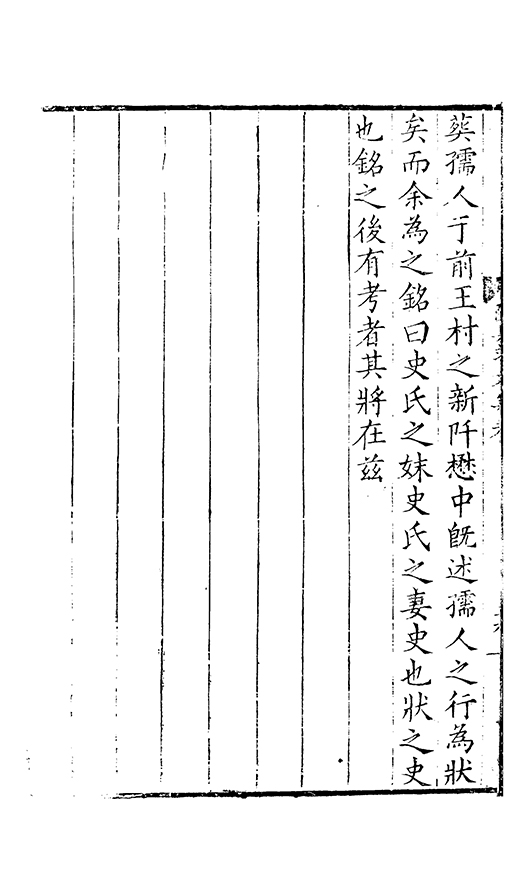 葬孺人于前王村之新阡懋中旣述孺人之行為狀
矣而余為之銘曰史氏之妹史氏之妻史也狀之史
也銘之後有考者其將在兹